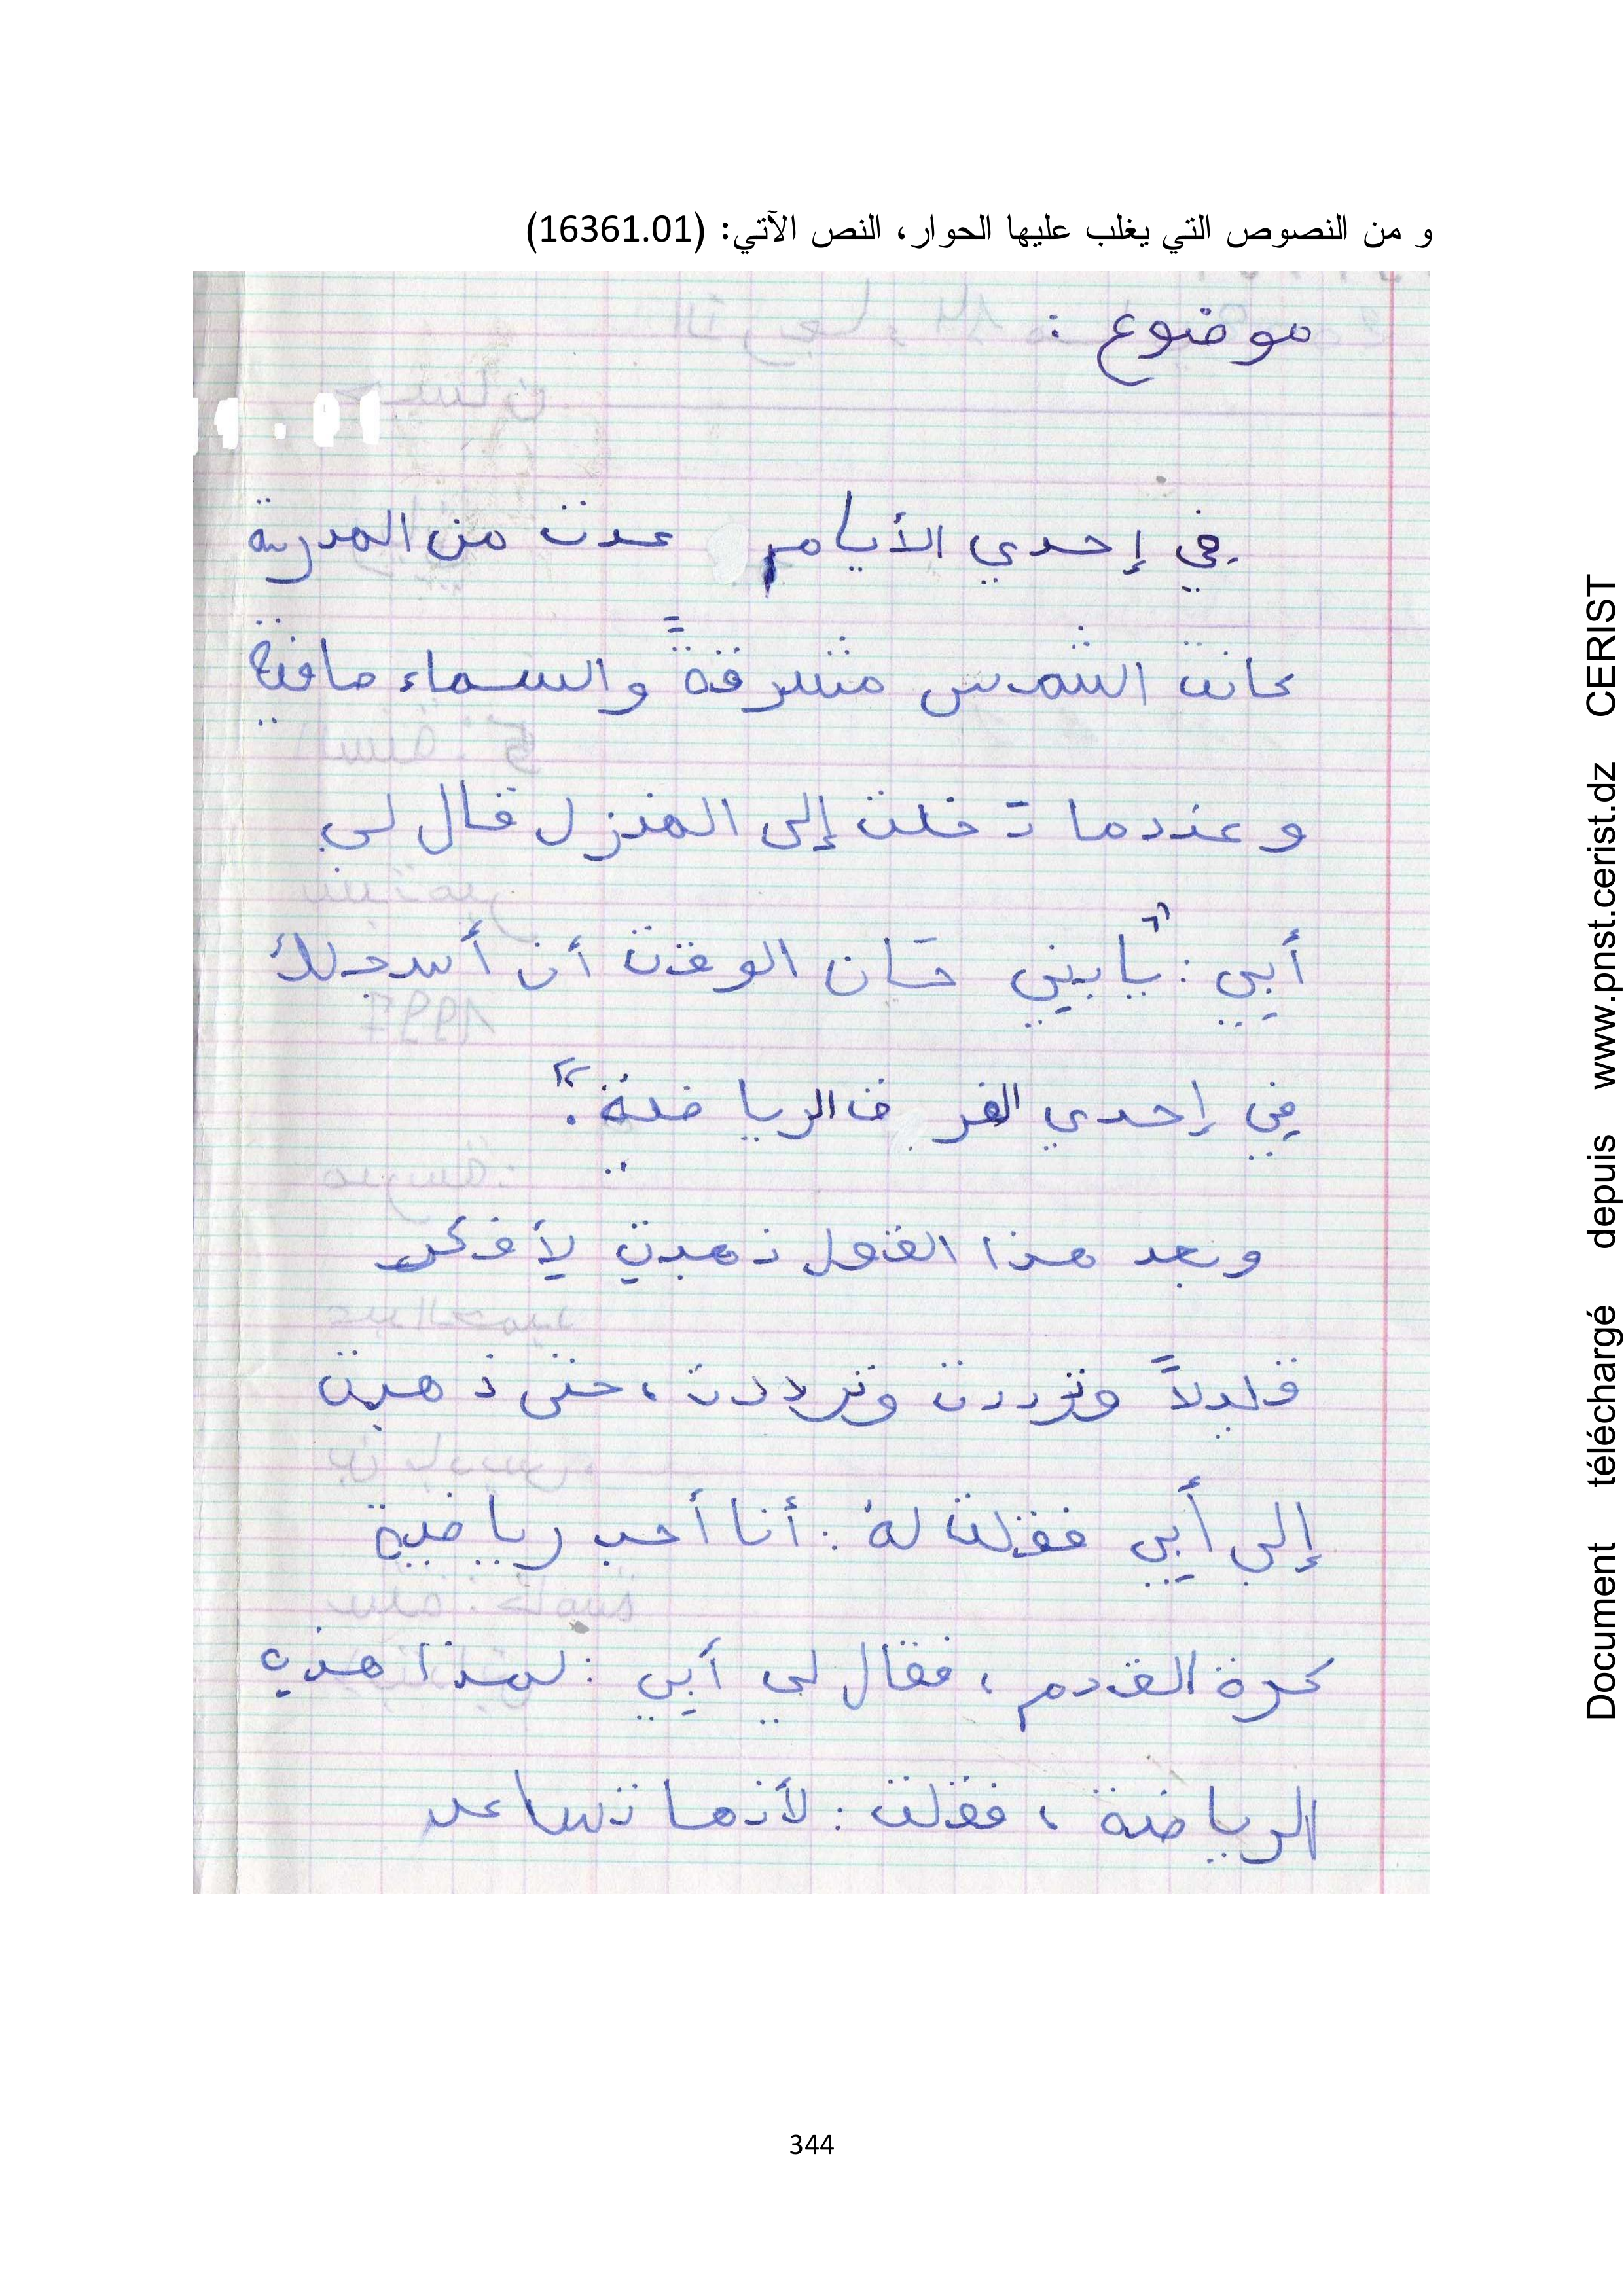 و من النصوص التي يغلب عليها الحوار، النص الآتي: (16361.01)
موضوع :
في إحدي الأيام عدت من المدرسة
كانت الشمس مشرقةً والسماء صافية
و عندما دخلت إلى المنزل قال لي
أبي : "يا بني حان الوقت أن أسجلك
في إحدي الفرق الرياضية".
وبعد هذا القول ذهبت لأفكر
قليلاً وترددت وترددت، حتى ذهبت
إلى أبي فقلت له : أنا أحب رياضية
كرة القدم، فقال لي أبي : لمذا هذه
الرياضة، فقلت : لأنها تساعد
344
Document téléchargé depuis www.pnst.cerist.dz CERIST